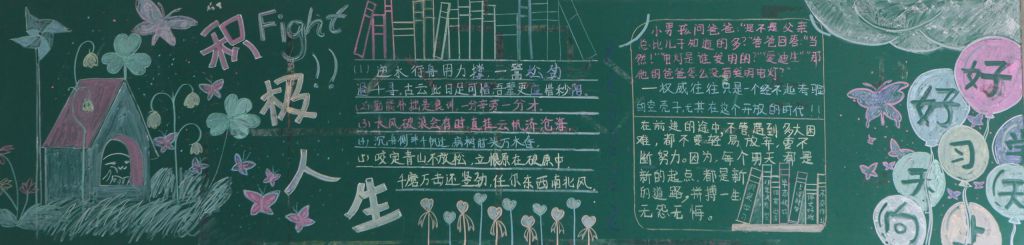 积极人生
Fight!!
(1) 逆水行舟用力撑,一篙松劲
退千寻,古云此日足可惜吾辈更应惜秒阴。
(2) 勤能补拙是良训,一分辛劳一分才。
(3) 长风破浪会有时直挂云帆济沧海。
(4) 沉舟侧畔千帆过,病树前头万木春。
(5) 咬定青山不放松,立根原在破原中
千磨万击还坚劲,任尔东西南北风。
小男孩问爸爸:"是不是父亲
总比儿子知道的多?"爸爸回答:"当
然!""电灯是谁发明的?""爱迪生""那
他的爸爸怎么没有发明电灯?"
——权威往往只是一个经不起考验
的空壳子尤其在这个开放的时代!!
在前进的途中,不管遇到多大困
难,都不要轻易放弃,要不
断努力。因为,每个明天都是
新的起点,都是新
的道路,拼搏一生
无怨无悔。
好好学习
天天向上